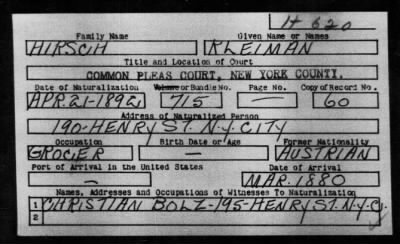 H 620
Family Name Given Name or Names
HIRSCH KLEIMAN
Title and Location of Court
COMMON PLEAS COURT, NEW YORK COUNTY.
Date of Naturalization Volume or Bundle No. Page No. Copy of Record No.
APR. 21-1892 715 — 60
Address of Naturalized Person
190-HENRY ST. N.Y. CITY
Occupation Birth Date or Age Former Nationality
GROCER — AUSTRIAN
Port of Arrival in the United States Date of Arrival
— MAR. 1880
Names, Addresses and Occupations of Witnesses To Naturalization
1 CHRISTIAN BOLZ-195-HENRY ST. N.Y.C.
2